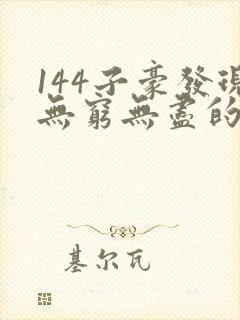 144子豪發現
無窮無盡的
基尔瓦